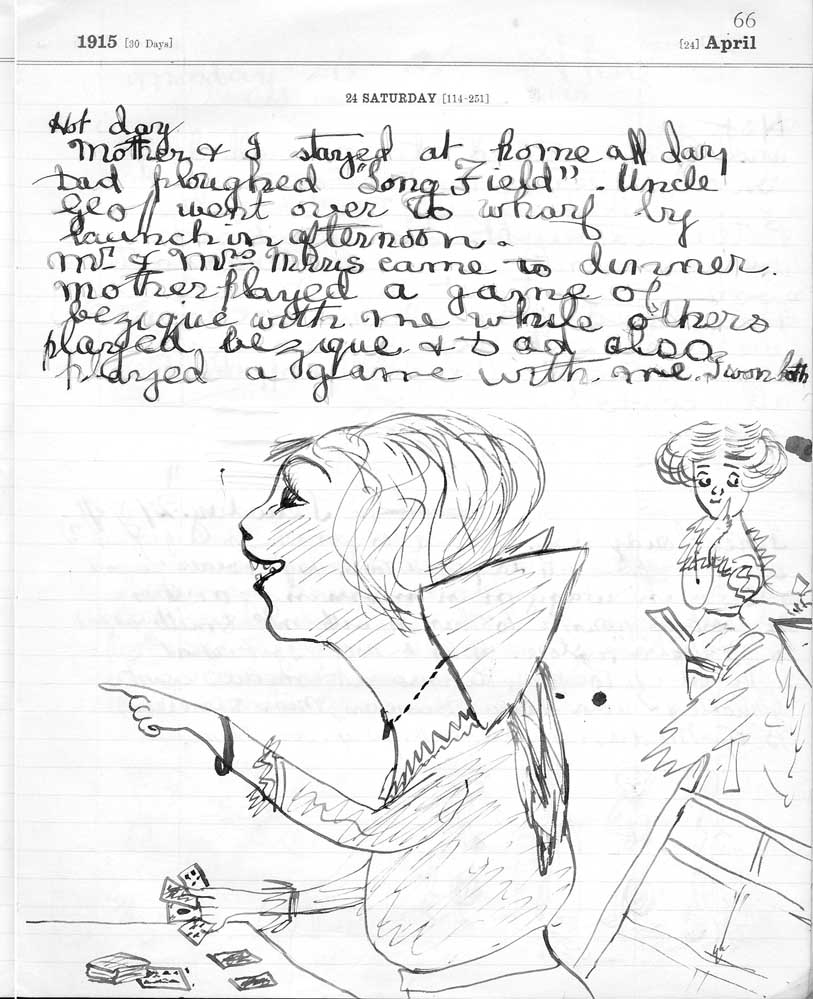 66
1915 [30 Days] [24] April
24 SATURDAY [114-251]
Hot day
Mother & I stayed at home all day
Dad ploughed "Long Field". Uncle
Geof went over to wharf by
launch in afternoon.
Mr & Mrs Morris came to dinner.
Mother played a game of
bezique with me while others
played bezique & Dad also
played a game with me. I won both